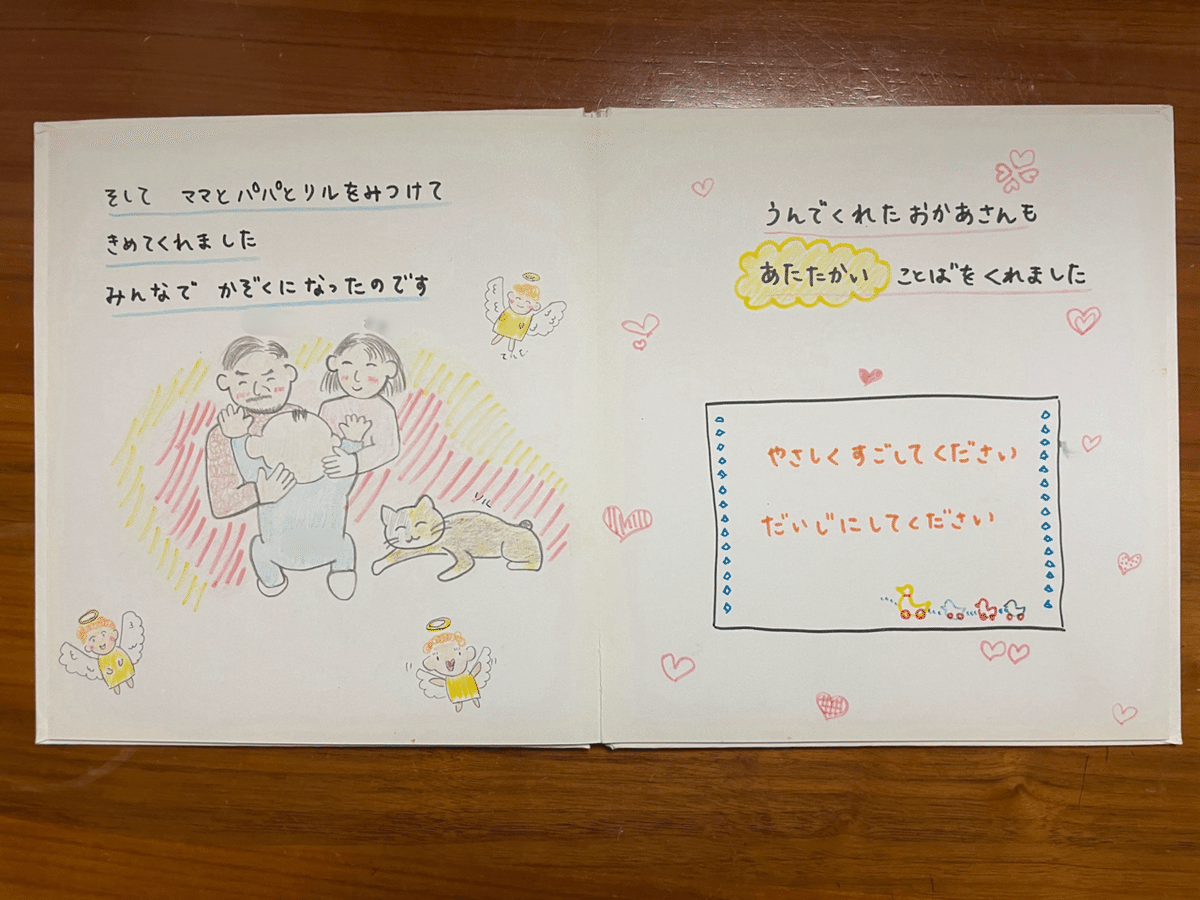 そして ママとパパとリルをみつけて
きめてくれました
みんなで かぞくになったのです
リル
うんでくれたおかあさんも
あたたかい ことばをくれました
やさしくすごしてください
だいじにしてください